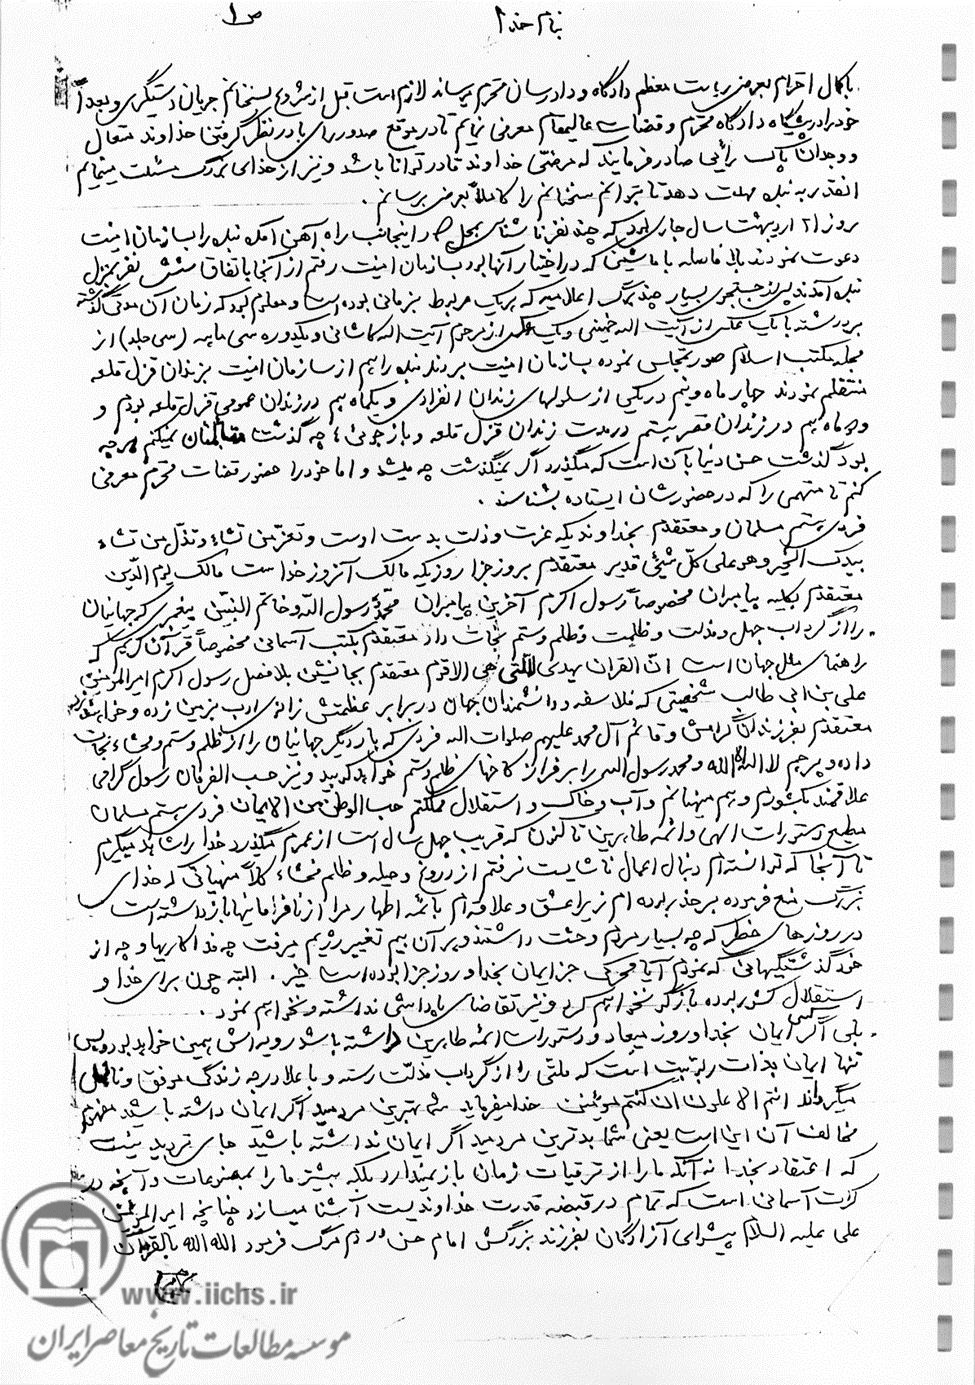 بنام خدا ص ۱
با کمال احترام بعرض ریاست معظم دادگاه و دادرسان محترم میرساند لازم است قبل از شروع بسخنانم جریان دستگیری و بعداً
خود را در پیشگاه دادگاه محترم و قضات عالیمقام معرفی نمایم تا در موقع صدور رای با در نظر گرفتن خداوند متعال
و وجدان پاک رأیی صادر فرمایند که مرضی خداوند قادر توانا باشد و نیز از خدای بزرگ مسئلت مینمایم
آنقدر به بنده مهلت دهد تا بتوانم سخنانم را کاملاً بعرض برسانم .
روز ۲۱ اردیبهشت سال جاری بود که چند نفر ناشناس بمحل کار اینجانب راه آهن آمدند بنده را بسازمان امنیت
دعوت نمودند بلافاصله با ماشینی که در اختیار آنها بود بسازمان امنیت رفتم از آنجا باتفاق شش نفر بمنزل
بنده آمدند پس از جستجوی بسیار چند برگ اعلامیه که هر یک مربوط بزمانی بوده است و معلوم بود که زمان آن مدتی گذشته
برداشته با یک عکس از آیت اله خمینی و یک عکس از مرحوم آیت اله کاشانی و یکدوره سی ماهه (سی جلد) از
مجله مکتب اسلام صورتمجلس نموده بسازمان امنیت بردند بنده را هم از سازمان امنیت بزندان قزل قلعه
منتقلم نمودند چهار ماه و نیم در یکی از سلولهای زندان انفرادی و یکماه هم در زندان عمومی قزل قلعه بودم و
دو ماه هم در زندان قصر هستم در مدت زندان قزل قلعه و بازجوئی چه گذشت نمیکنم هر چه
بود گذشت حسن دنیا بآن است که میگذرد اگر نمیگذشت چه میشد و اما خود را حضور قضات محترم معرفی
کنم تا متهمی را که در حضورشان ایستاده بشناسند .
فردی هستم مسلمان و معتقدم بخداوندیکه عزت و ذلت بدست اوست و تعز من تشاء و تذل من تشاء
بیدک الخیر و هو علی کل شیئی قدیر معتقدم بروز جزا روزیکه مالک آنروز خداست مالک یوم الدین
معتقدم بکلیه پیامبران مخصوصاً رسول اکرم آخرین پیامبران محمد رسول الله و خاتم النبیین پیغمبری که جهانیان
را از گرداب جهل و مذلت و ظلمت و ظلم و ستم نجات داد معتقدم بکتب آسمانی مخصوصاً قرآن کریم که
راهنمای ملل جهان است ان القران یهدی للتی هی الاقوم معتقدم بجانشین بلافصل رسول اکرم امیرالمومنین
علی بن ابی طالب شخصیتی که فلاسفه و دانشمندان جهان در برابر عظمتش زانوی ادب بزمین زده و خواهند زد
معتقدم بفرزندان گرامش و قائم آل محمد علیهم صلوات اله فردی که بار دیگر جهانیان را از ظلم و ستم و فحشاء نجات
داده و پرچم لا اله الا الله و محمد رسول الله را بر فراز کاخهای ظلم و ستم خواهد کوبید و نیز حسب الفرمان رسول گرامی
علاقمند بکشورم و هم میهنانم و آب و خاک و استقلال مملکتم حب الوطن من الایمان فردی هستم مسلمان
مطیع دستورات الهی و ائمه طاهرین تاکنون که قریب چهل سال است از عمرم میگذرد خدا را شاهد میگیرم
تا آنجا که توانسته ام دنبال اعمال ناشایست نرفتم از دروغ و حیله و ظلم فحشاء کلاً منهیاتی که خدای
بزرگ منع فرموده بر حذر بوده ام زیرا عشق و علاقه ام بائمه اطهار مرا از نافرمانیها بازداشته است
در روزهای خطر که چه بسیار مردم وحشت داشتند و بر آن بیم تغییر رژیم میرفت چه فداکاریها و چه از
خود گذشتگیهائی که نمودم آیا محرک جز ایمان بخدا و روز جزا بوده است خیر . البته چون برای خدا و
استقلال کشور بوده بازگو نخواهم کرد و نیز تقاضای پاداشی نداشته و نخواهم نمود .
بلی اگر کسی ایمان بخدا و روز میعاد و دستورات ائمه طاهرین داشته باشد رویه اش همین خواهد بود و بس
تنها ایمان بذات ربانیت است که ملتی را از گرداب مذلت رسته و با علا درجه زندگی موفق و نائل
میگرداند انتم الاعلون ان کنتم مومنین خدا میفرماید شما بهترین مردمید اگر ایمان داشته باشید مفهوم
مخالف آن این است یعنی شما بدترین مردمید اگر ایمان نداشته باشید جای تردید نیست
که اعتقاد بخدا نه آنکه ما را از ترقیات زمان باز نمیدارد بلکه بیشتر ما را بمصنوعات و آنچه در
کرات آسمانی است که تمام در قبضه قدرت خداوندیست آشنا میسازد چنانچه امیرالمومنین
علی علیه السلام پیشوای آزادگان بفرزند بزرگش امام حسن در دم مرگ فرمود الله الله بالقرآن
www.iichs.ir
موسسه مطالعات تاریخ معاصر ایران